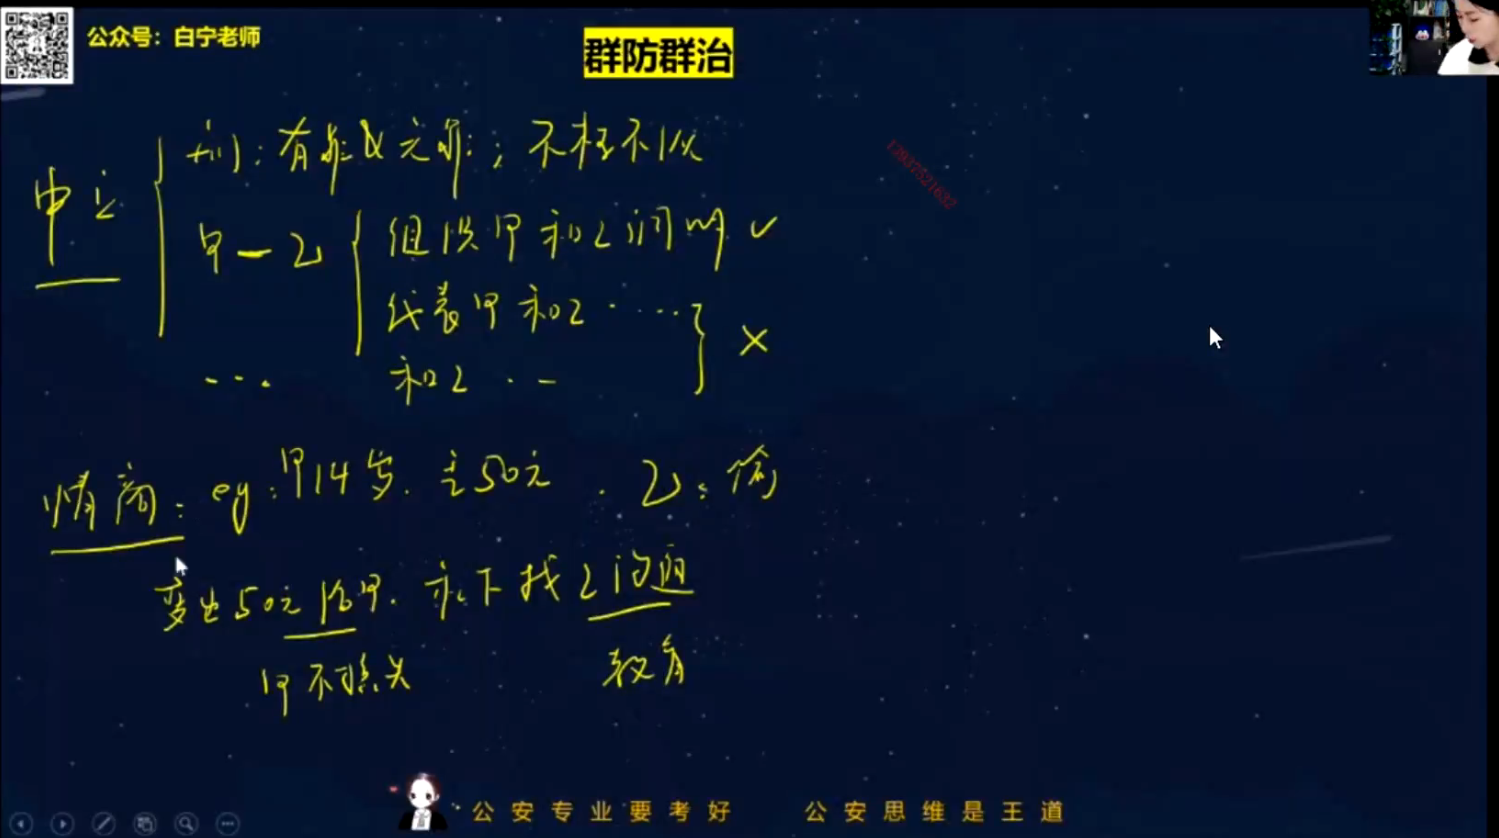 公众号：白宁老师
群防群治
中立
刑：有罪&无罪；不枉不纵
甲—乙
组织甲和乙调解 ✓
代表甲和乙……
×
… 和乙……
情商：eg：甲14岁.丢50元.乙：偷
变出50元给甲.私下找乙沟通
甲不丢失
教育
公安专业要考好 公安思维是王道